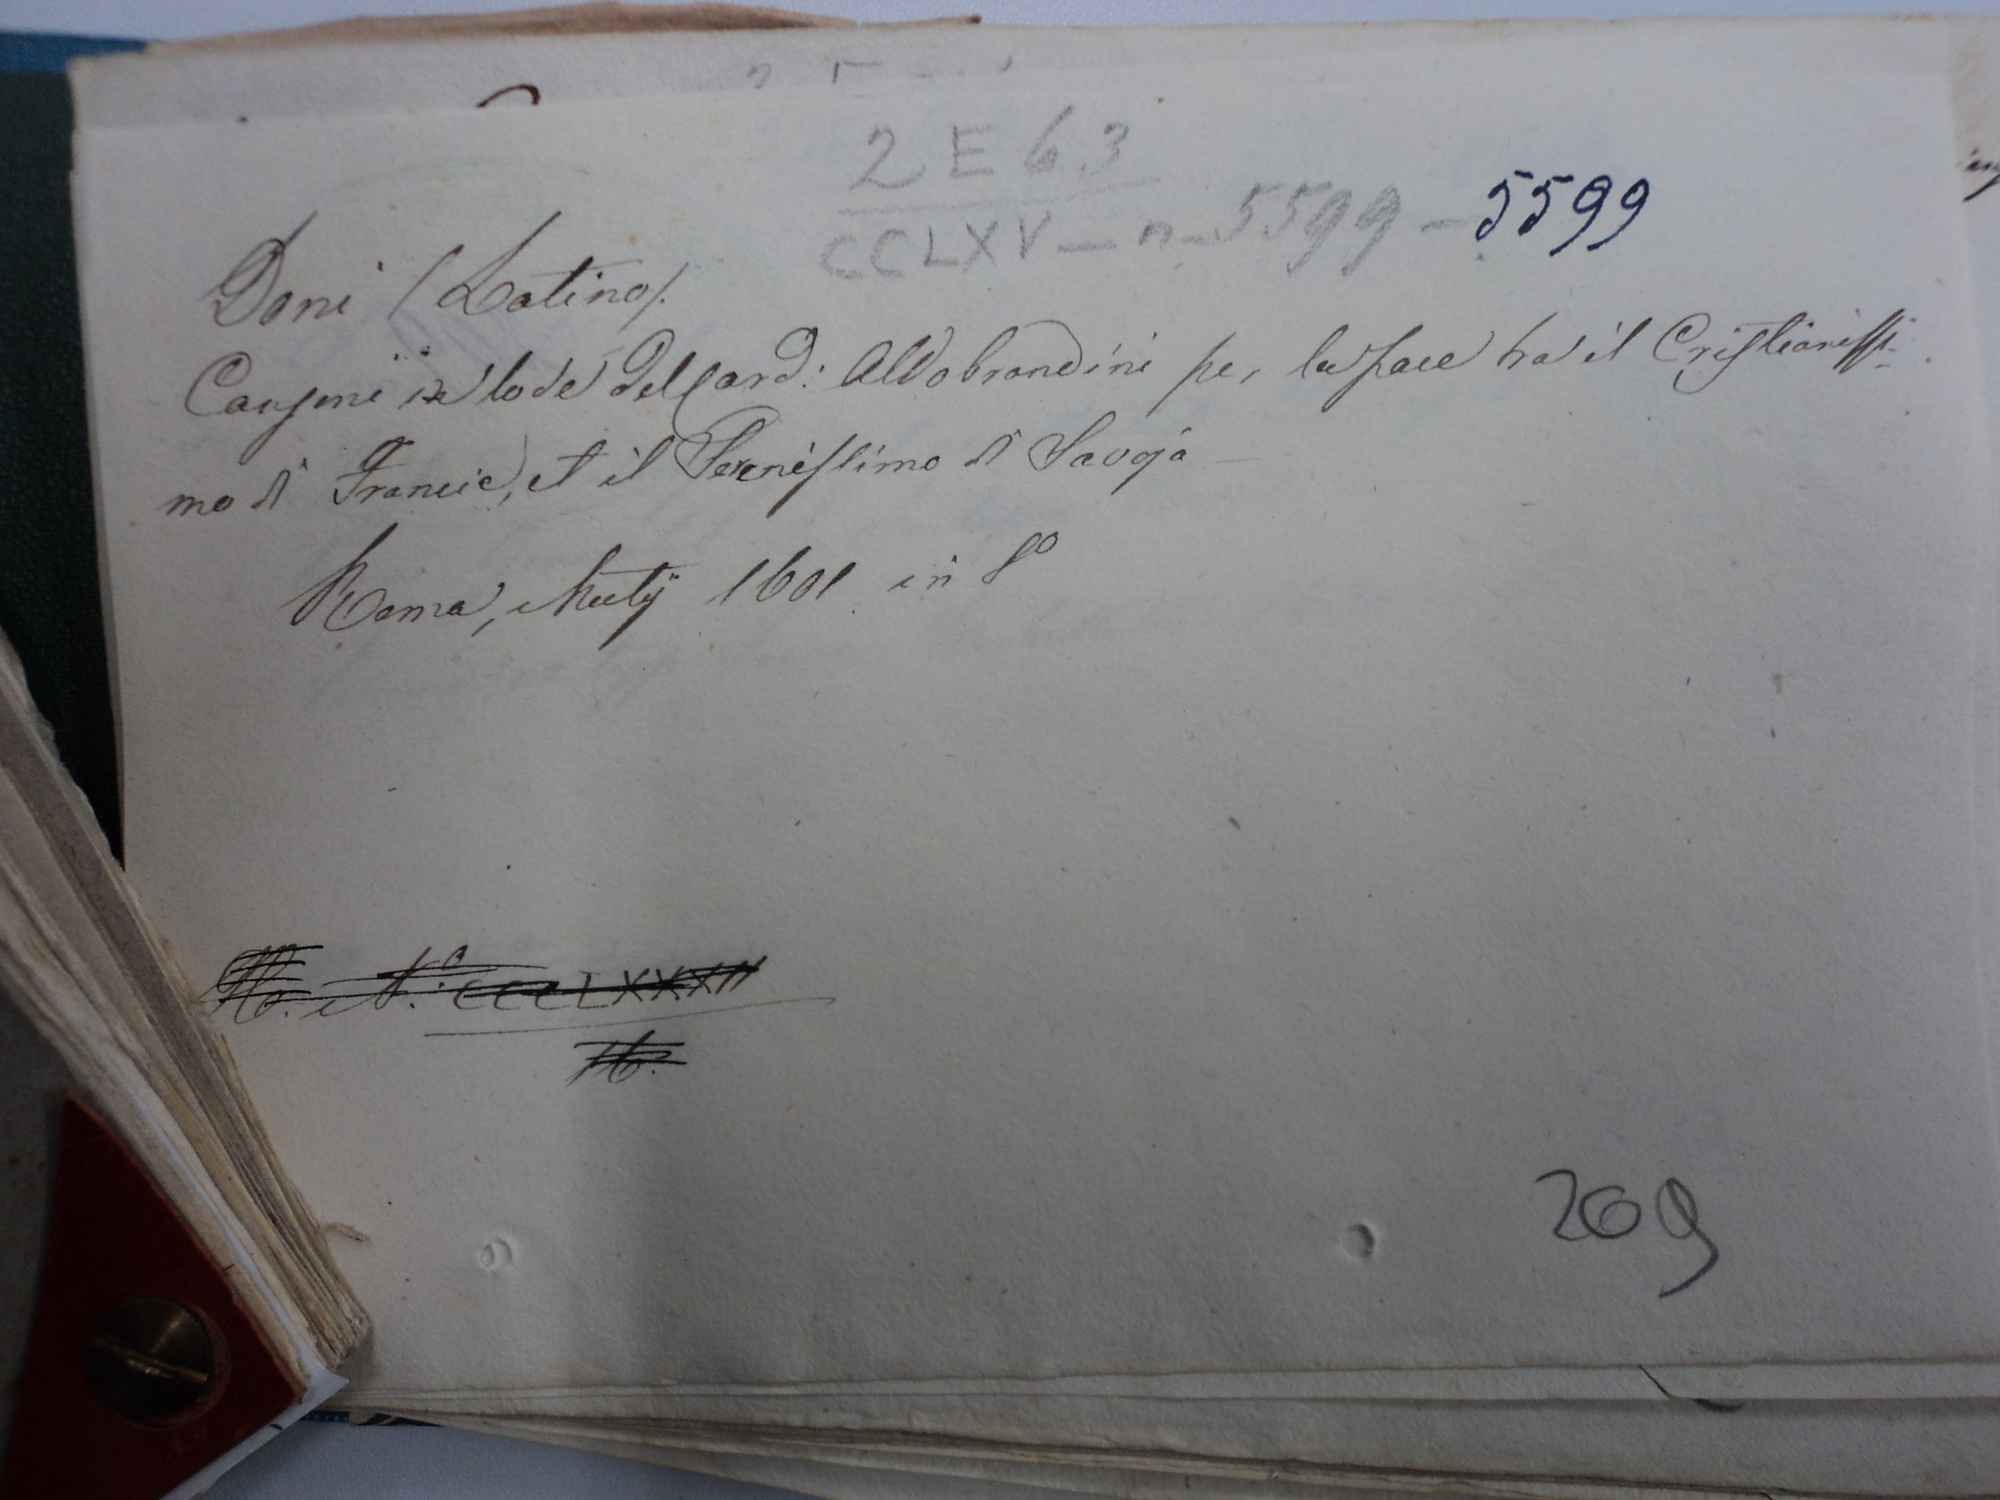 2 E 63
CCLXV — n — 5599 — 5599
Doni (Latino).
Canzoni in lode del Card: Aldobrandini per la pace tra il Cristianissi-
mo di Francia, et il Serenissimo di Savoja —
Roma, Mutij 1601 in 8º
N.º CCCLXXXII
209